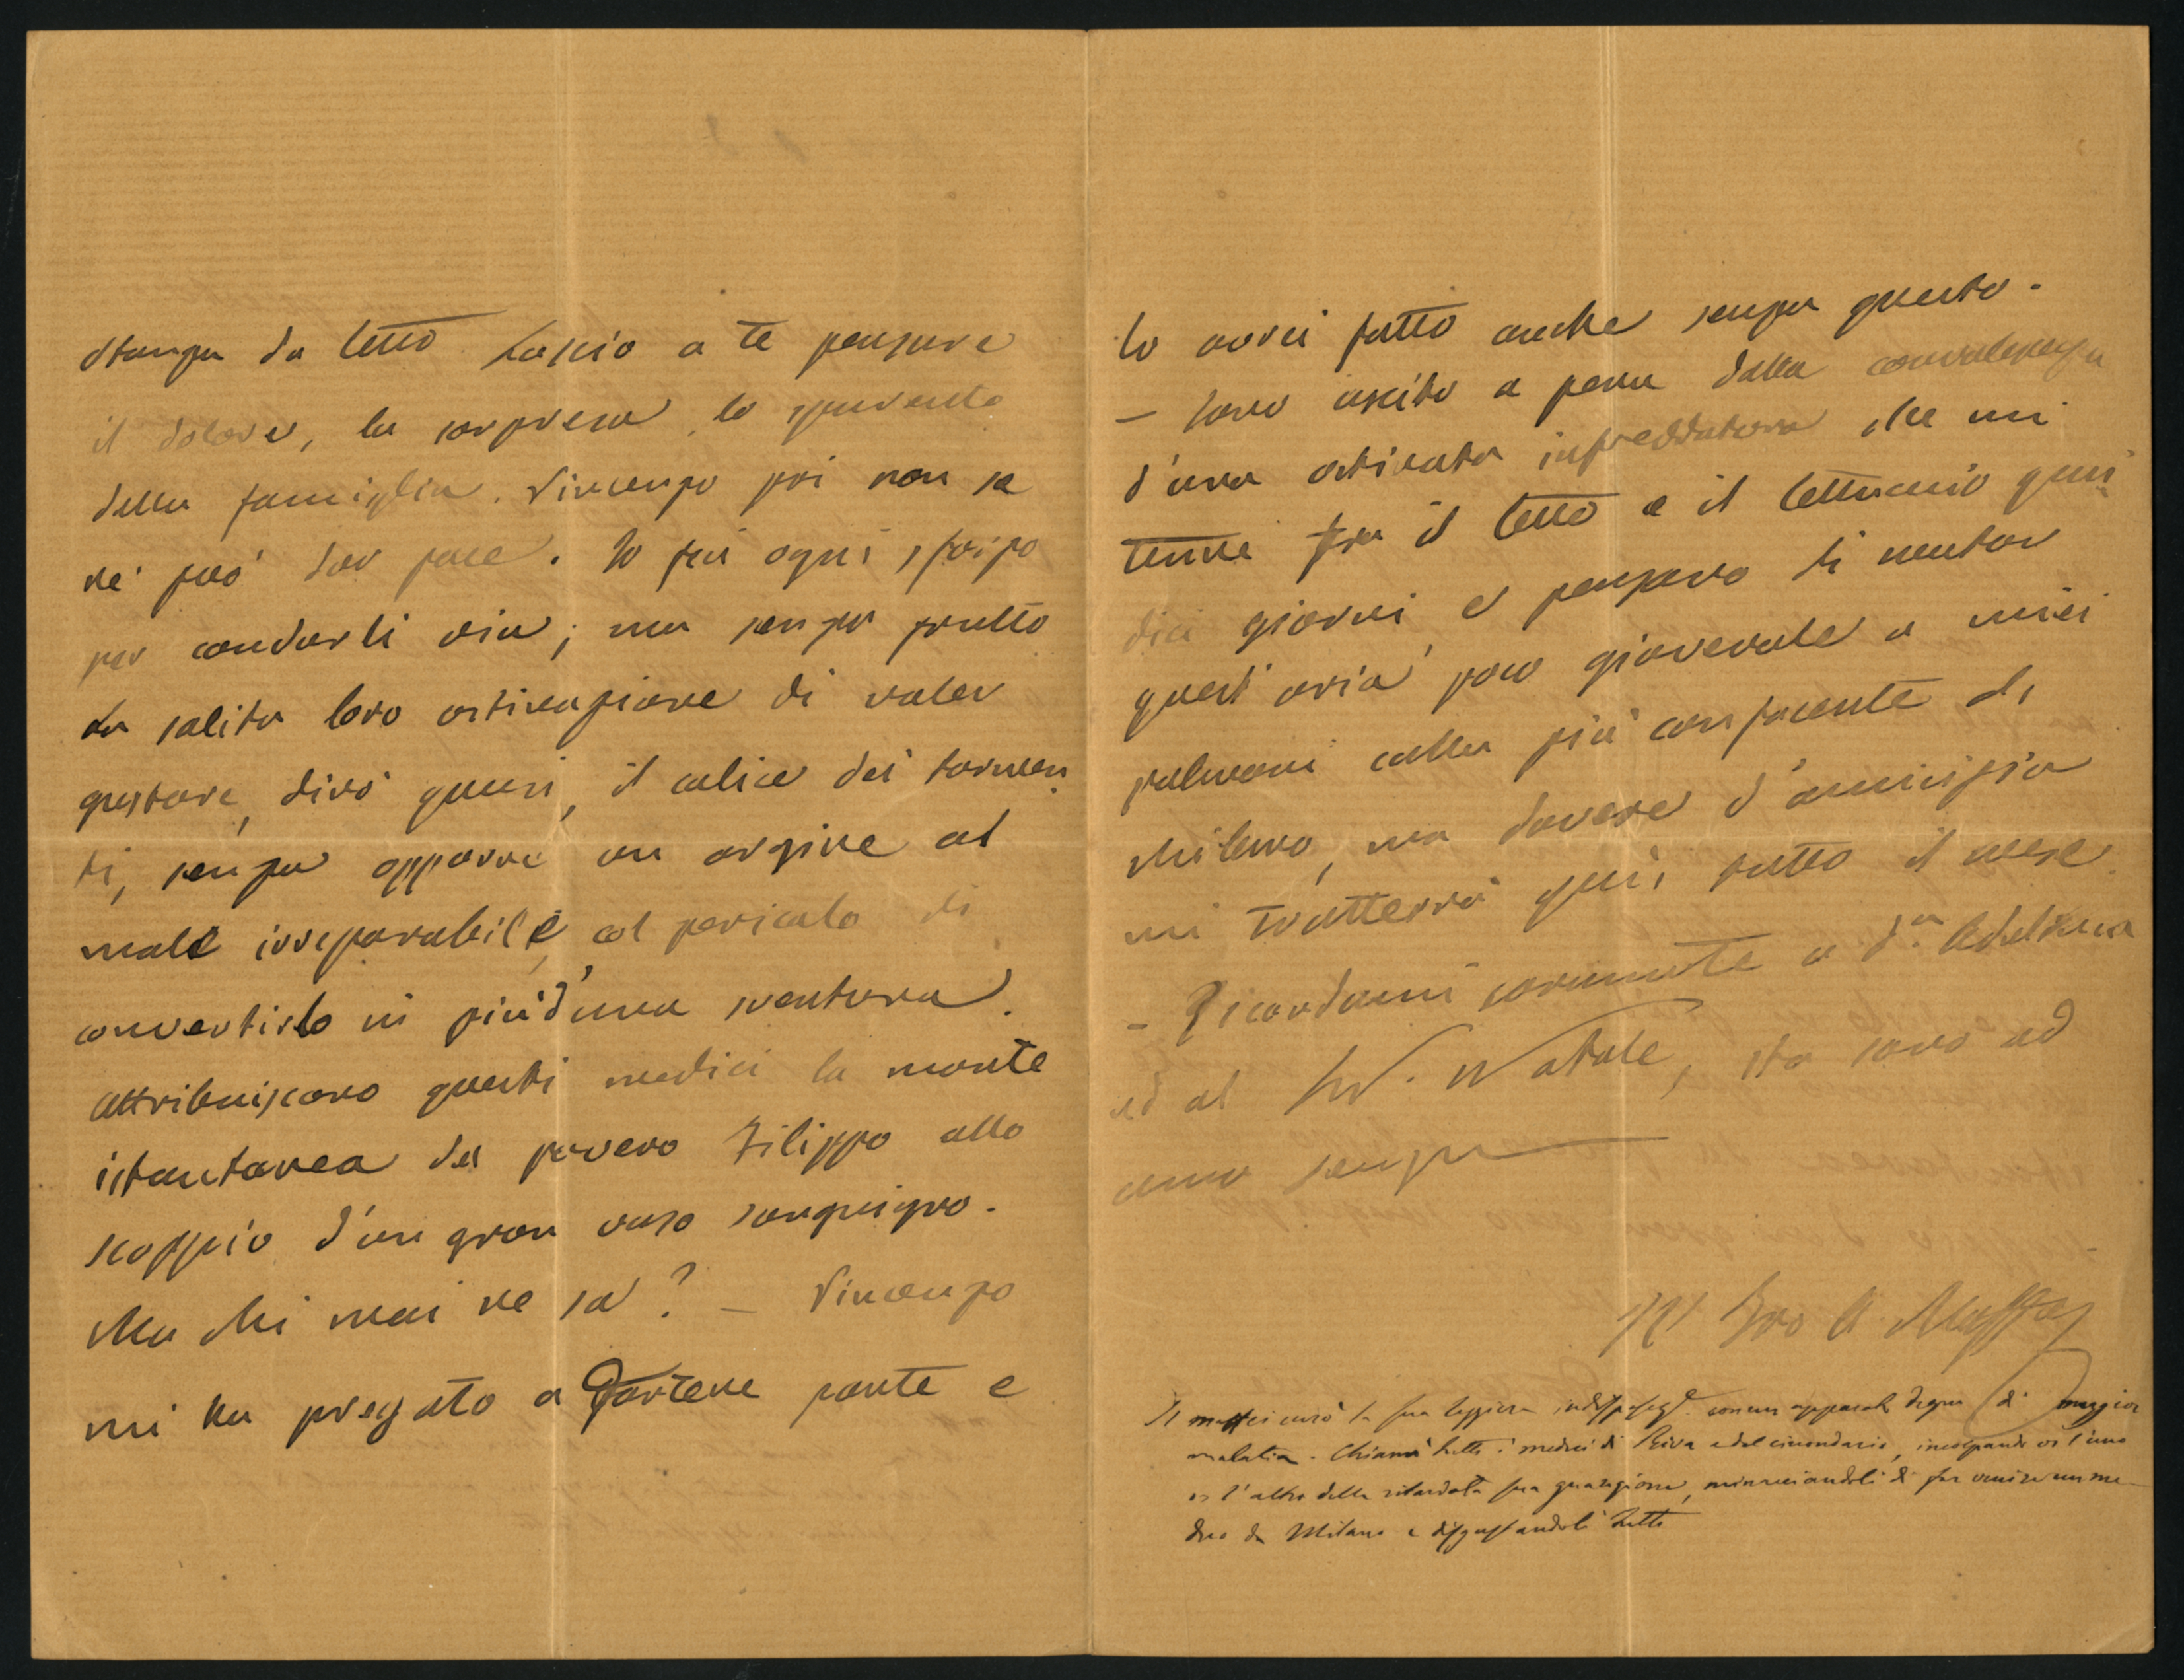 stanza da letto. Lascio a te pensare
il dolore, la sorpresa, lo spavento
della famiglia. Vincenzo poi non sa
nè può dar pace. Io fei ogni sforzo
per condurli via; ma senza frutto
La solita loro ostinazione di voler
gustare, dirò quasi, il calice dei tormen
ti, senza opporre un argine al
male irreparabile, al pericolo di
convertirlo in più d'una sventura.
Attribuiscono questi medici la morte
istantanea del povero Filippo allo
scoppio d'un gran vaso sanguigno.
Ma chi mai ne sa? — Vincenzo
mi ha pregato a fartene parte e
lo avrei fatto anche senza questo.
— Sono uscito a pena dalla convalescenza
d'una ostinata infreddatura che mi
tenne fra il letto e il lettuccio quin
dici giorni, e pensavo di mutar
quest'aria poco giovevole a miei
polmoni colla più confacente di
Milano, ma dovere d'amicizia
mi tratterrà qui tutto il mese.
- Ricordami caramente a d.a
ed al Natale, sta sano ed
ama sempre
Il tuo A. Maffei
Il Maffei curò la sua leggiera con un apparato degno di maggior
malatia. Chiamò tutti i medici di Riva e del circondario, incolpando or l'uno
or l'altro della ritardata sua guarigione, minacciandoli di far venire un me-
dico da Milano e disgustandoli tutti